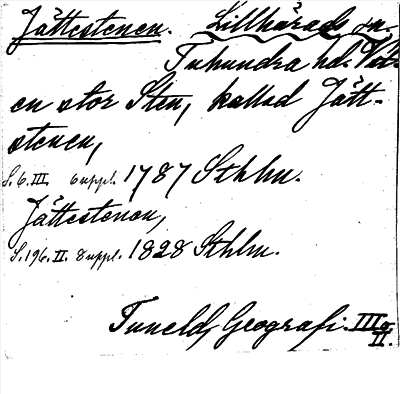 Jättestenen. Lillhärads sn.
Tuhundra hd. Vstm.
en stor Sten, kallad Jätt-
stenen,
S. 6. III. 6 uppl. 1787 Sthlm.
Jättestenen,
S. 196. II. 8 uppl. 1828 Sthlm.
Tuneld, Geografi. III o.
II.